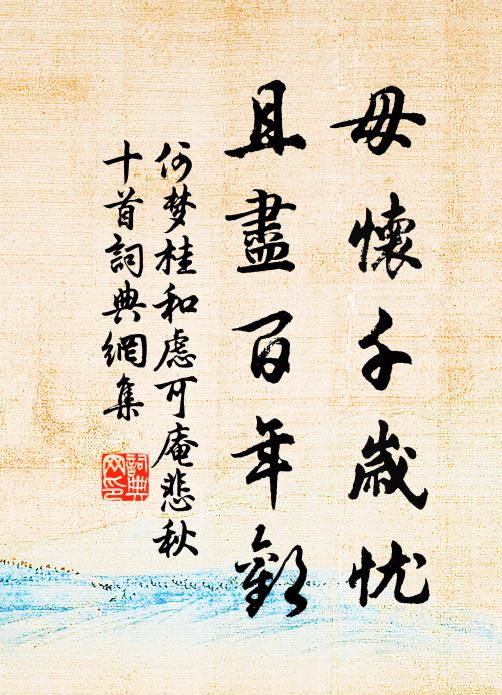 毋懷千歲忧
且盡百年歡
何梦桂和慮可庵悲秋
十首詞典網集
詞典
网印